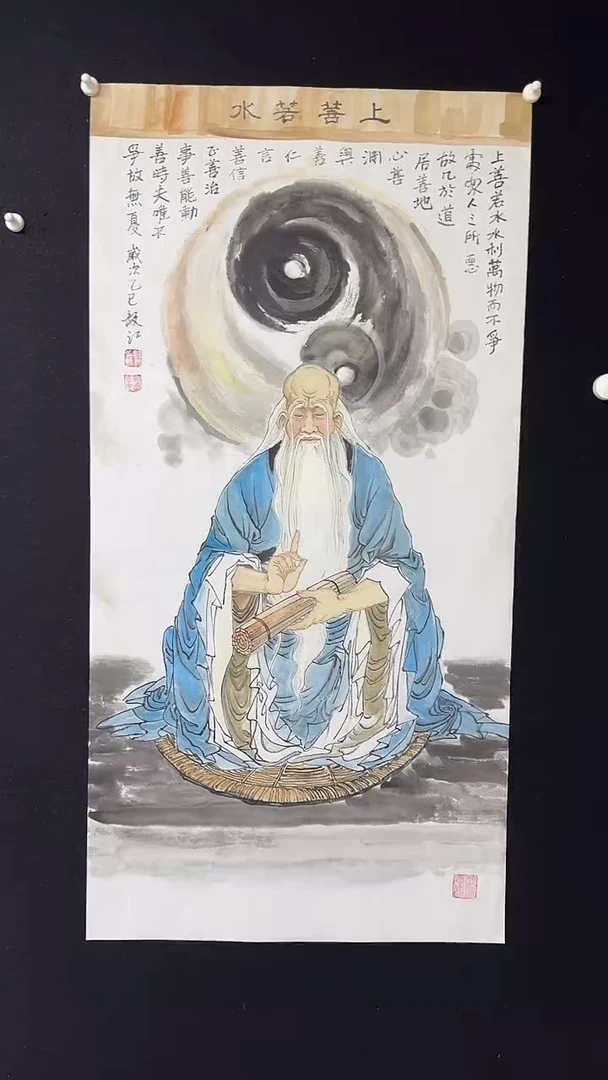 上善若水
上善若水水利萬物而不爭
處眾人之所惡
故几於道
居善地
心善
淵
與
善
仁
言
善信
正善治
事善能動
善時夫唯不
爭故無憂 歲次乙巳